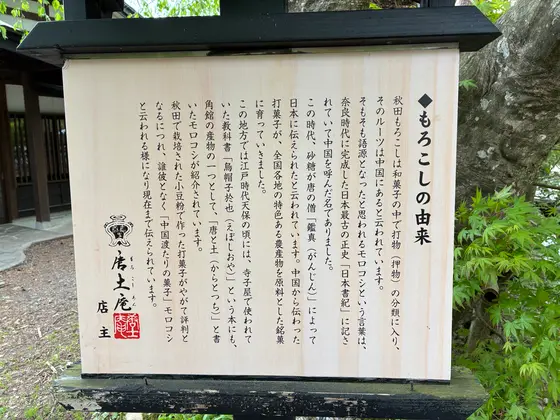 ◆もろこしの由来
秋田もろこしは和菓子の中で打物（押物）の分類に入り、
そのルーツは中国にあると云われています。
そもそも語源となったと思われるモロコシという言葉は、
奈良時代に完成した日本最古の正史「日本書紀」に記さ
れていて中国を呼んだ名でありました。
この時代、砂糖が唐の僧「鑑真（がんじん）」によって
日本に伝えられたと云われています。中国から伝わった
打菓子が、全国各地の特色ある農産物を原料とした銘菓
に育っていきました。
この地方では江戸時代天保の頃には、寺子屋で使われて
いた教科書「烏帽子於也（えぼしおや）」という本にも、
角館の産物の一つとして、「唐と土（からとつち）」と書
いたモロコシが紹介されています。
秋田で栽培された小豆粉で作った打菓子がやがて評判と
なるにつれ、誰彼となく「中国渡たりの菓子」モロコシ
と云われる様になり現在まで伝えられています。
もろこしあん
唐土庵
店主